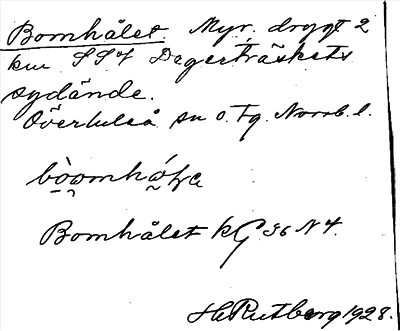 Bomhålet. Myr, drygt 2
km SSV Dagerträskets
sydände.
Överluleå sn o. Tg. Norrb. l.
Bomhålet kG 36 N4.
H Rutberg 1928.